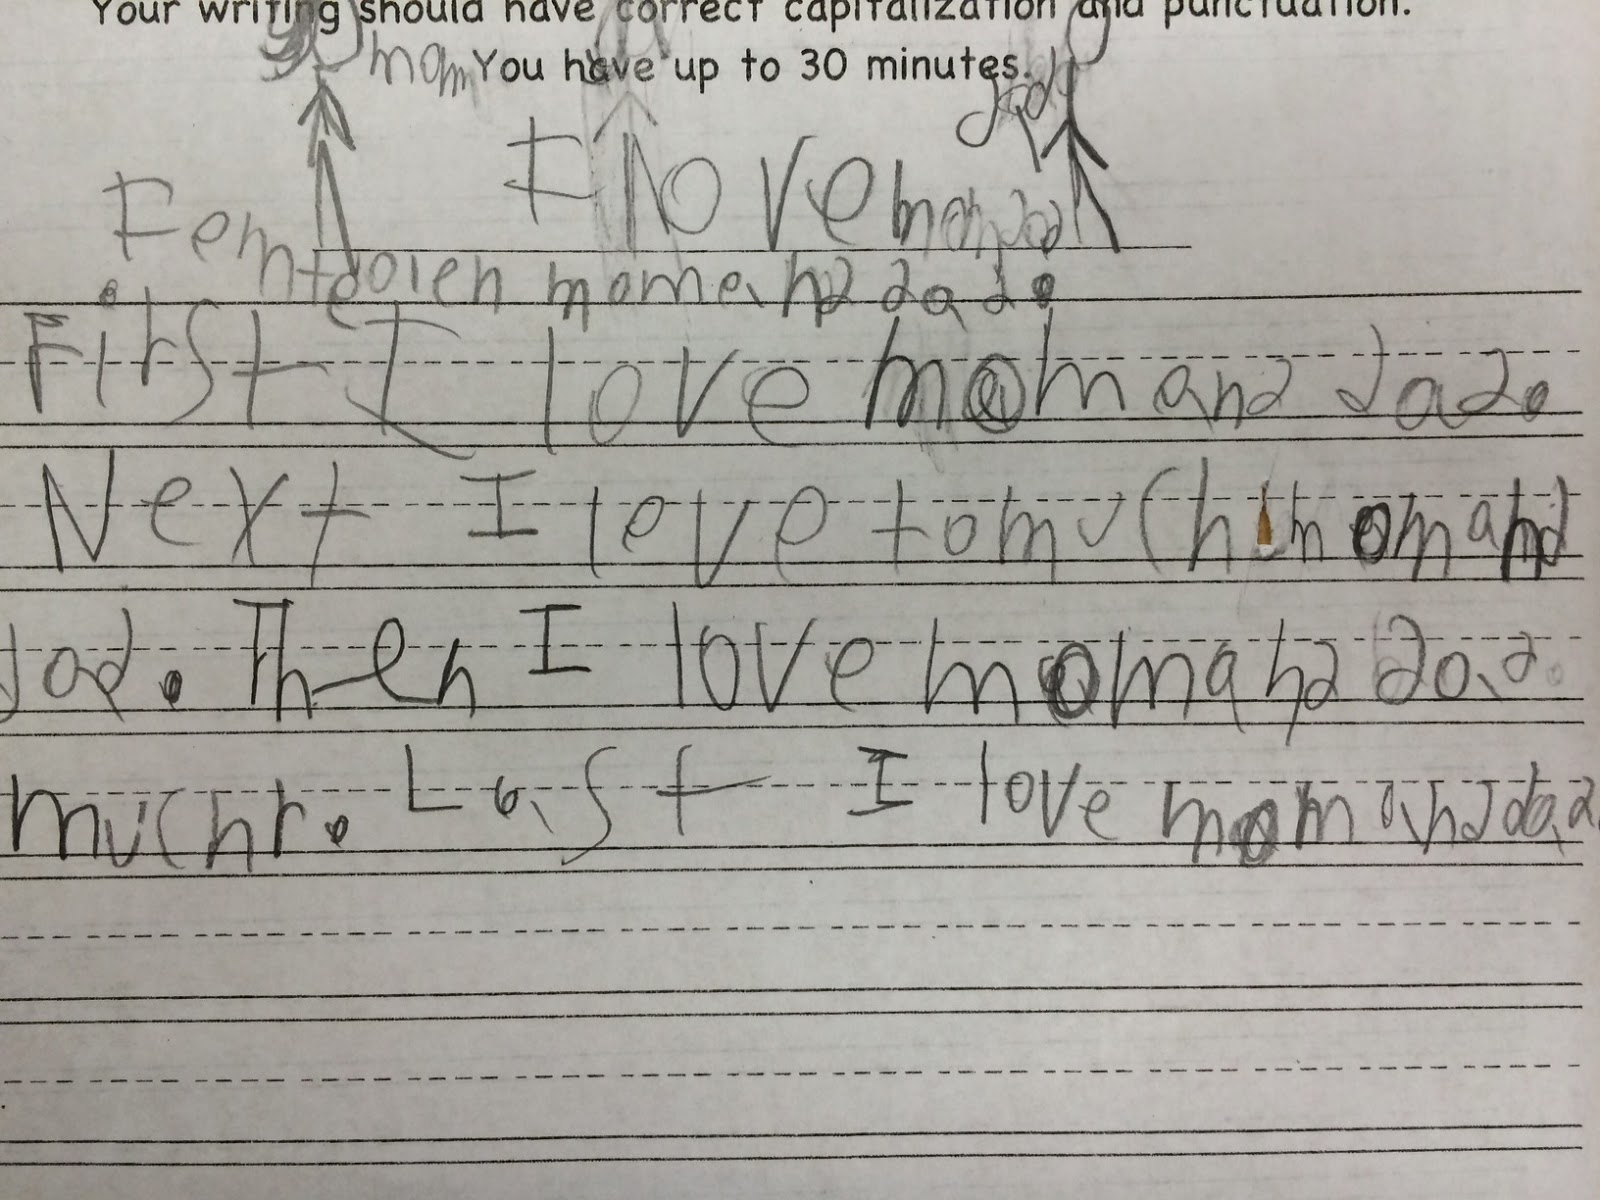 Your writing should have correct capitalization and punctuation.
mom You have up to 30 minutes. dad
I love mom dad
mom and dad.
First I love mom and dad.
Next I leve to much mom and
dad. Then I love mom and dad
muchr. Last I love mom and dad